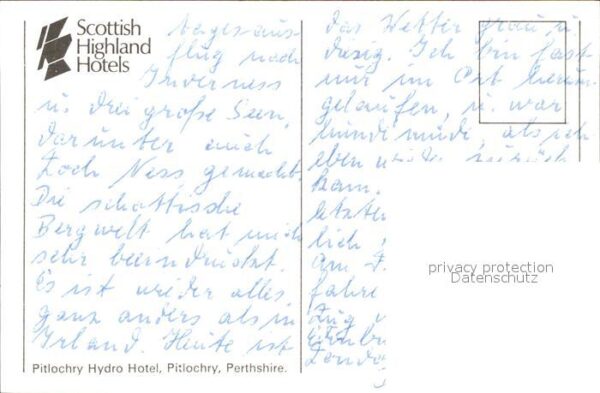 Scottish
Highland
Hotels
Tagesaus
flug nach
Inverness
u. drei große Seen,
darunter auch
Loch Ness gemacht.
Die schottische
Bergwelt hat mich
sehr beeindruckt.
Es ist wieder alles
ganz anders als in
Irland. Heute ist
Pitlochry Hydro Hotel, Pitlochry, Perthshire.
das Wetter grau u.
diesig. Ich bin fast
nur im Ort herum
gelaufen, u. war
hundemüde, als ich
eben wieder zurück
kam.
letzte
lich
Am
fahre
Zug
Edinb
Londo
privacy protection
Datenschutz